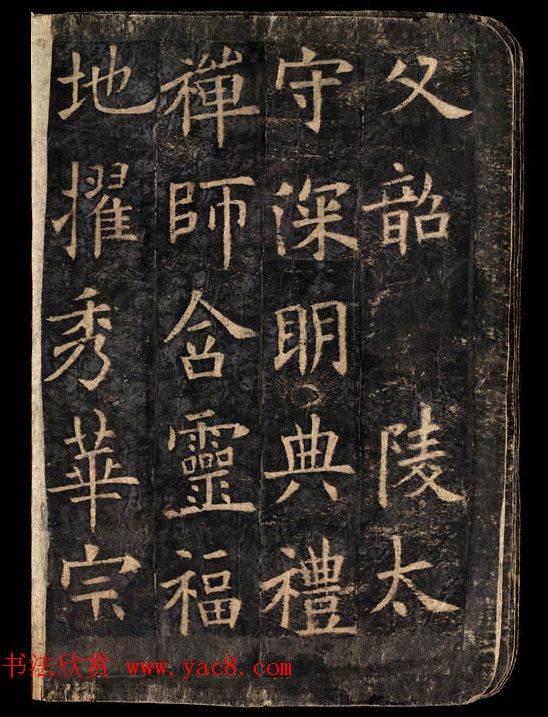 父韶陵太
守深明典禮
禪師含靈福
地擢秀華宗
书法欣赏 www.yac8.com